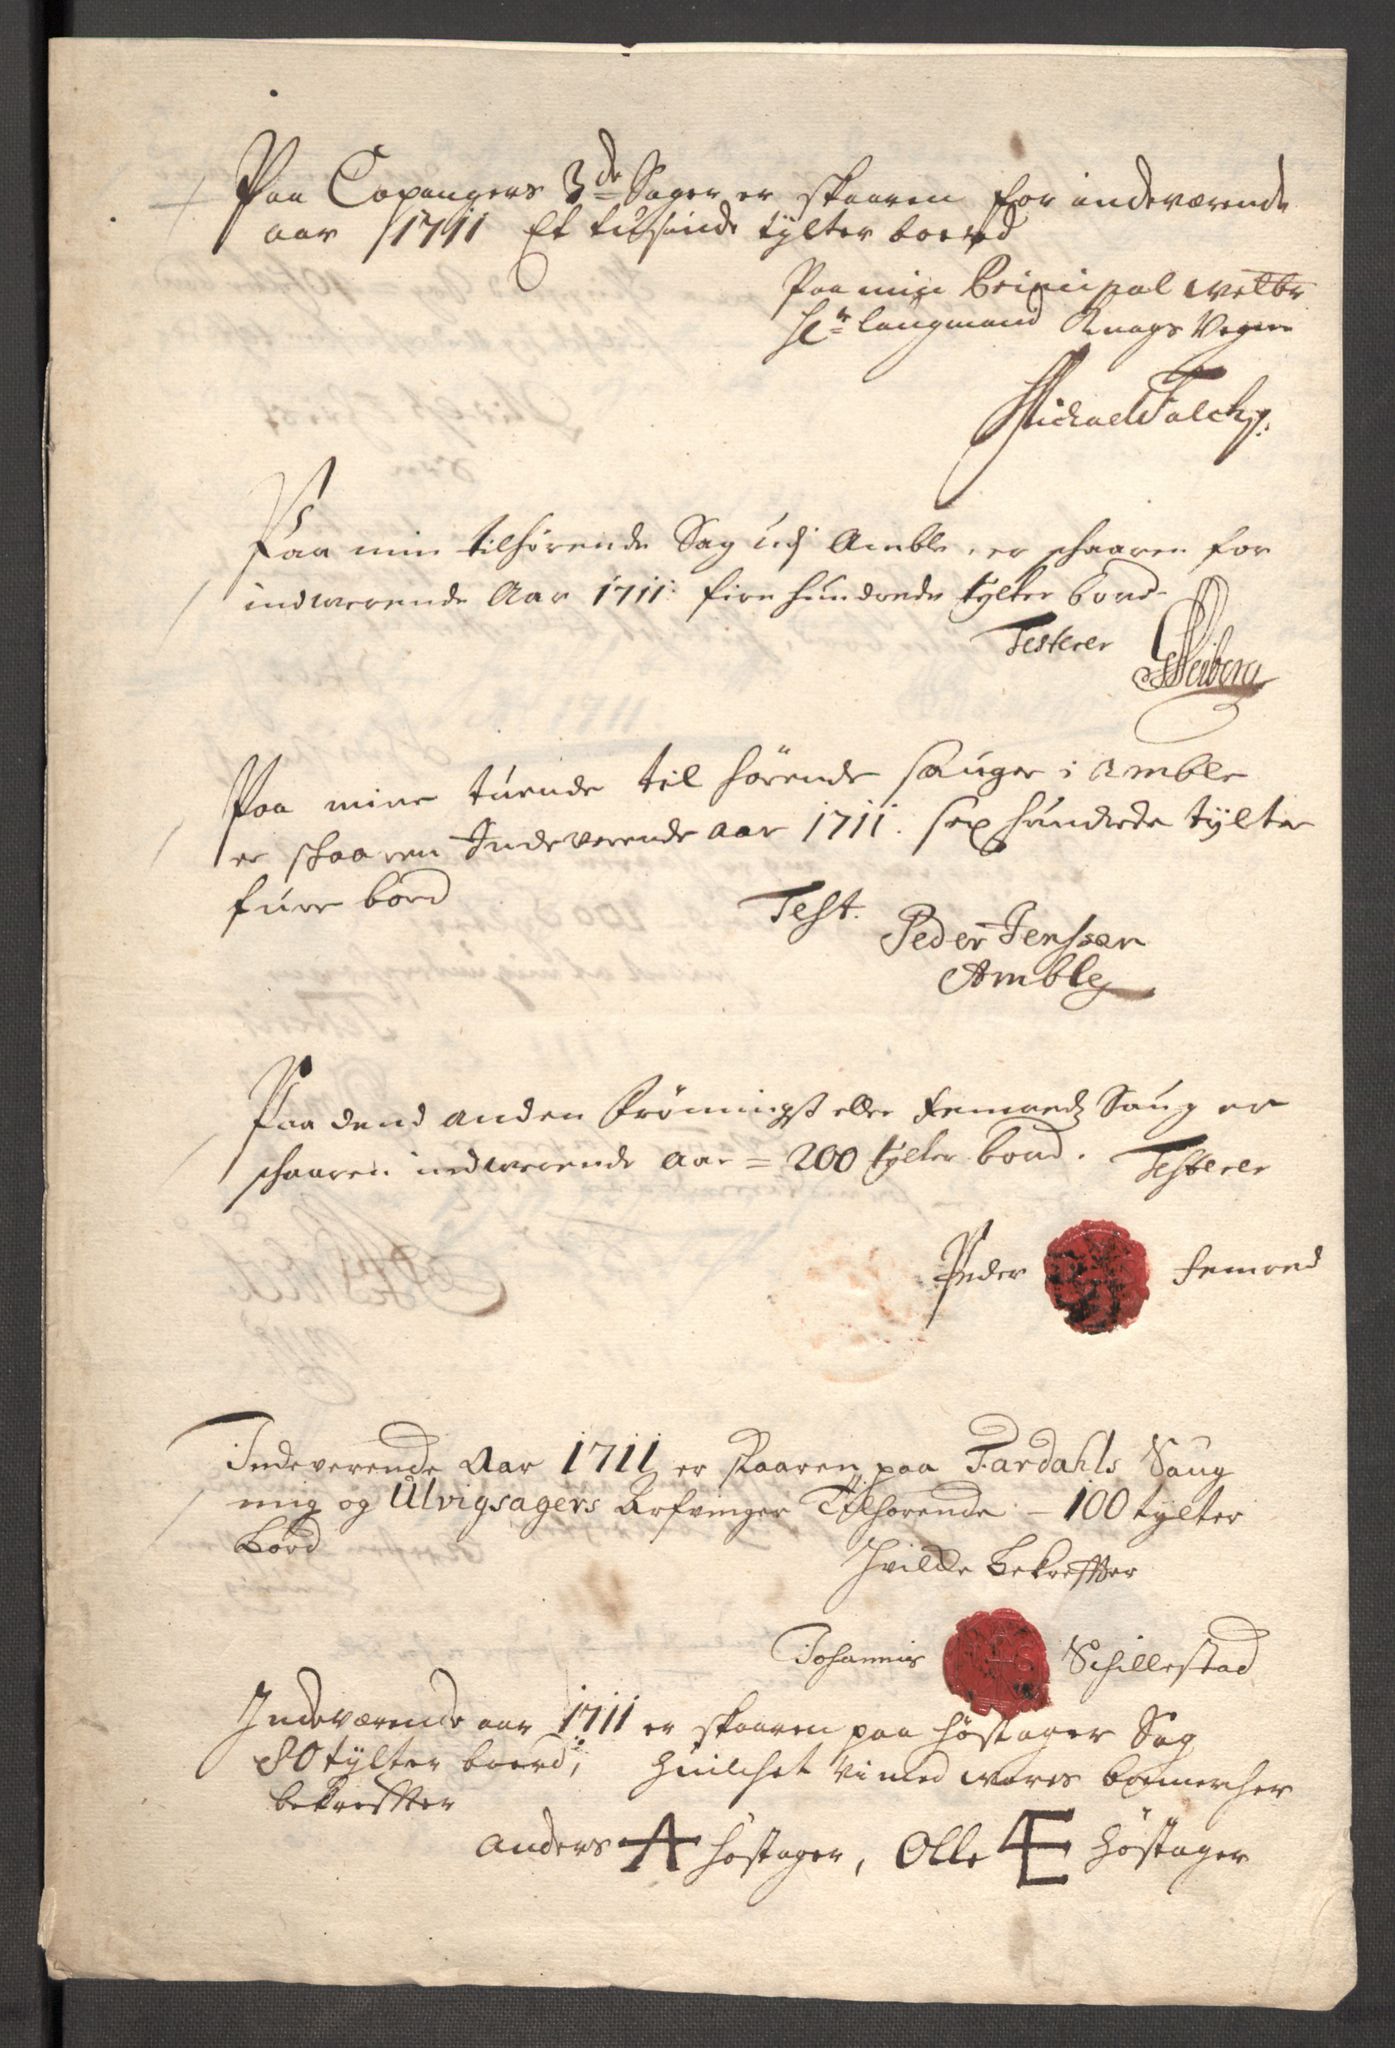 Paa Copangers 3de Sager er skaaren for indeværende
aar 1711 Et tusinde tylter boerd
Paa min Principal welbr
Hr laugmand Knags Vegne
Michael Falch
Paa min tilhörende Sag udj Amble, er schaaren for
indwerende Aar 1711: fire hundrede tylter bord
Testerer
GHeiberg
Paa mine tuende til hörende sauger i Amble
er skaaren Indeverende aar 1711. sex hundrede tylter
fure bord
Test.
Peder Jenssøn
Amble
Paa dend anden Krönningst eller Femreds Saug er
schaaren indwerende Aar = 200 tylter bord. Testerer
Peder Femred
Indeverende Aar 1711 er skaaren paa Fardahls Saug
mig og Ulvigsagers Arfvinger Tilhorende - 100 tylter
Bord
Hvilde bekreffter
Johannis Schillestad
Indeværende aar 1711 er skaaren paa Höstager Sag
80 tylter boerd; Huilchet Vi med wores bomercher
bekreffter
Anders A Höstager, Olle Æ Höstager